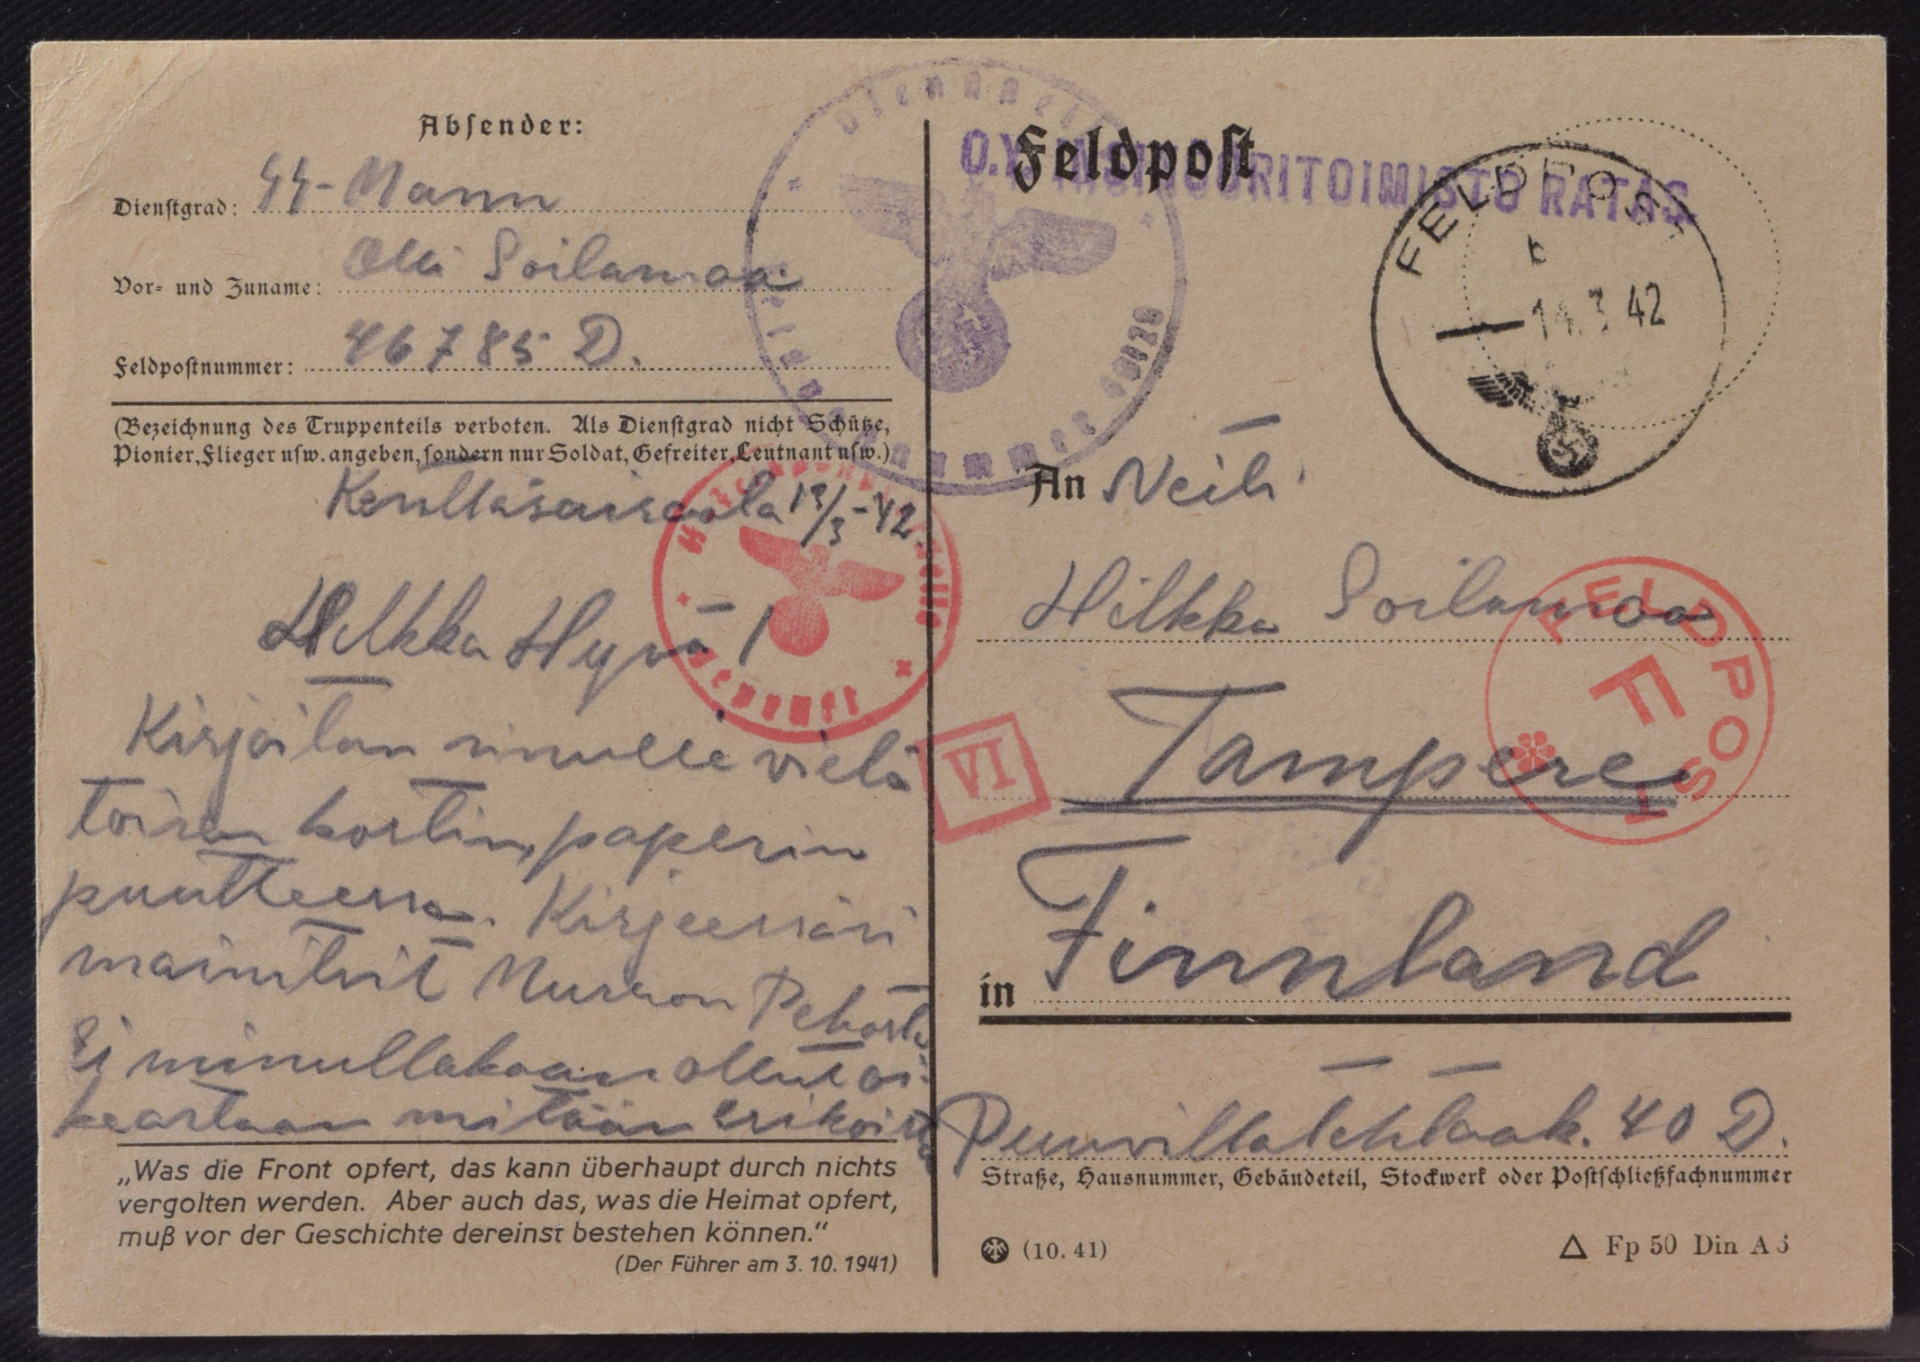 Absender:
Dienstgrad: SS-Mann
Vor- und Zuname: Olli Soilamaa
Feldpostnummer: 46785 D.
(Bezeichnung des Truppenteils verboten. Als Dienstgrad nicht Schütze,
Pionier, Flieger usw. angeben, sondern nur Soldat, Gefreiter, Leutnant usw.)
Kenttäsairaala 12/3-42.
Hilkka Hyvä!
Kirjoitan sinulle vielä
toisen kortin, paperin
puutteessa. Kirjeessäsi
mainitsit Nurmon
Ei minullakaan ollut oi-
keastaan mitään erikoista
„Was die Front opfert, das kann überhaupt durch nichts
vergolten werden. Aber auch das, was die Heimat opfert,
muß vor der Geschichte dereinst bestehen können.“
(Der Führer am 3. 10. 1941)
Feldpost
O.Y. INSINÖÖRITOIMISTO RATAS
FELDPOST
b
14.3.42
An Neiti
Hilkka Soilamaa
Tampere
in Finnland
Puuvillatehtaak. 40 D.
Straße, Hausnummer, Gebäudeteil, Stockwerk oder Postschließfachnummer
(10. 41)
△ Fp 50 Din A 6
FELDPOST
F
VI